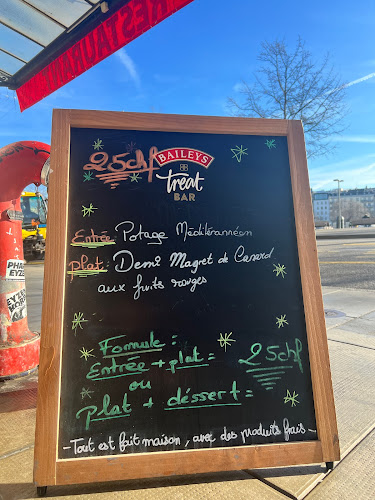 RESTAURANT
25chf
BAILEYS
treat
BAR
Entrée: Potage Méditérannéen
plat: Demi Magret de Canard
aux fruits rouges
Formule:
Entrée + plat =
25chf
ou
plat + déssert =
- Tout est fait maison, avec des produits frais -